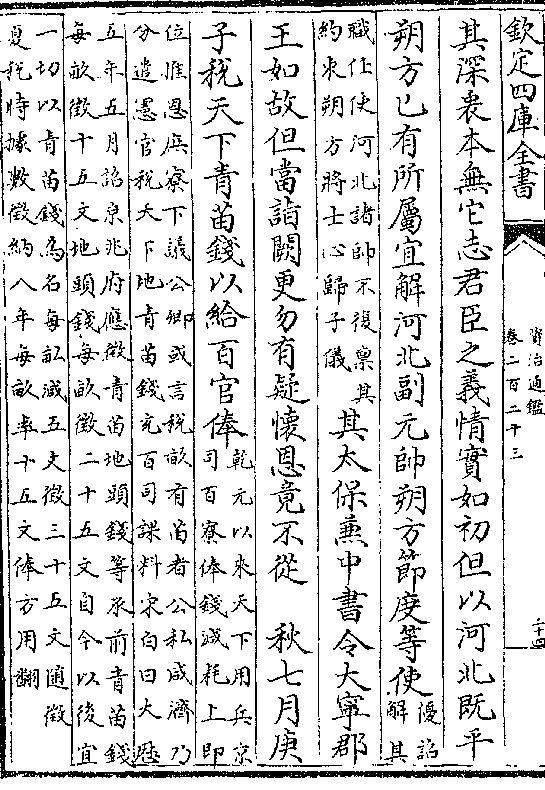 欽定四庫全書
資治通鑑
卷二百二十三
二十四
其深衷本無它志君臣之義情實如初但以河北既平
朔方已有所屬宜解河北副元帥朔方節度等使
優詔
解其
職仕使河北諸帥不復稟其
約束朔方將士心歸子儀
其太保兼中書令大寧郡
王如故但當詣闕更勿有疑懷恩竟不從　秋七月庚
子稅天下青苗錢以給百官俸
乾元以來天下用兵京
司百寮俸錢減耗上即
位推恩庶寮下議公卿或言稅畝有苗者公私咸濟乃
分遣憲官稅天下地青苗錢充百司課料宋白曰大厯
五年五月詔京兆府應徵青苗地頭錢等承前青苗錢
每畝徵十五文地頭錢每畝徵二十五文自今以後宜
一切以青苗錢為名每畝減五文徵三十五文随徵
夏稅時據數徵納八年每畝率十五文俸方用翻